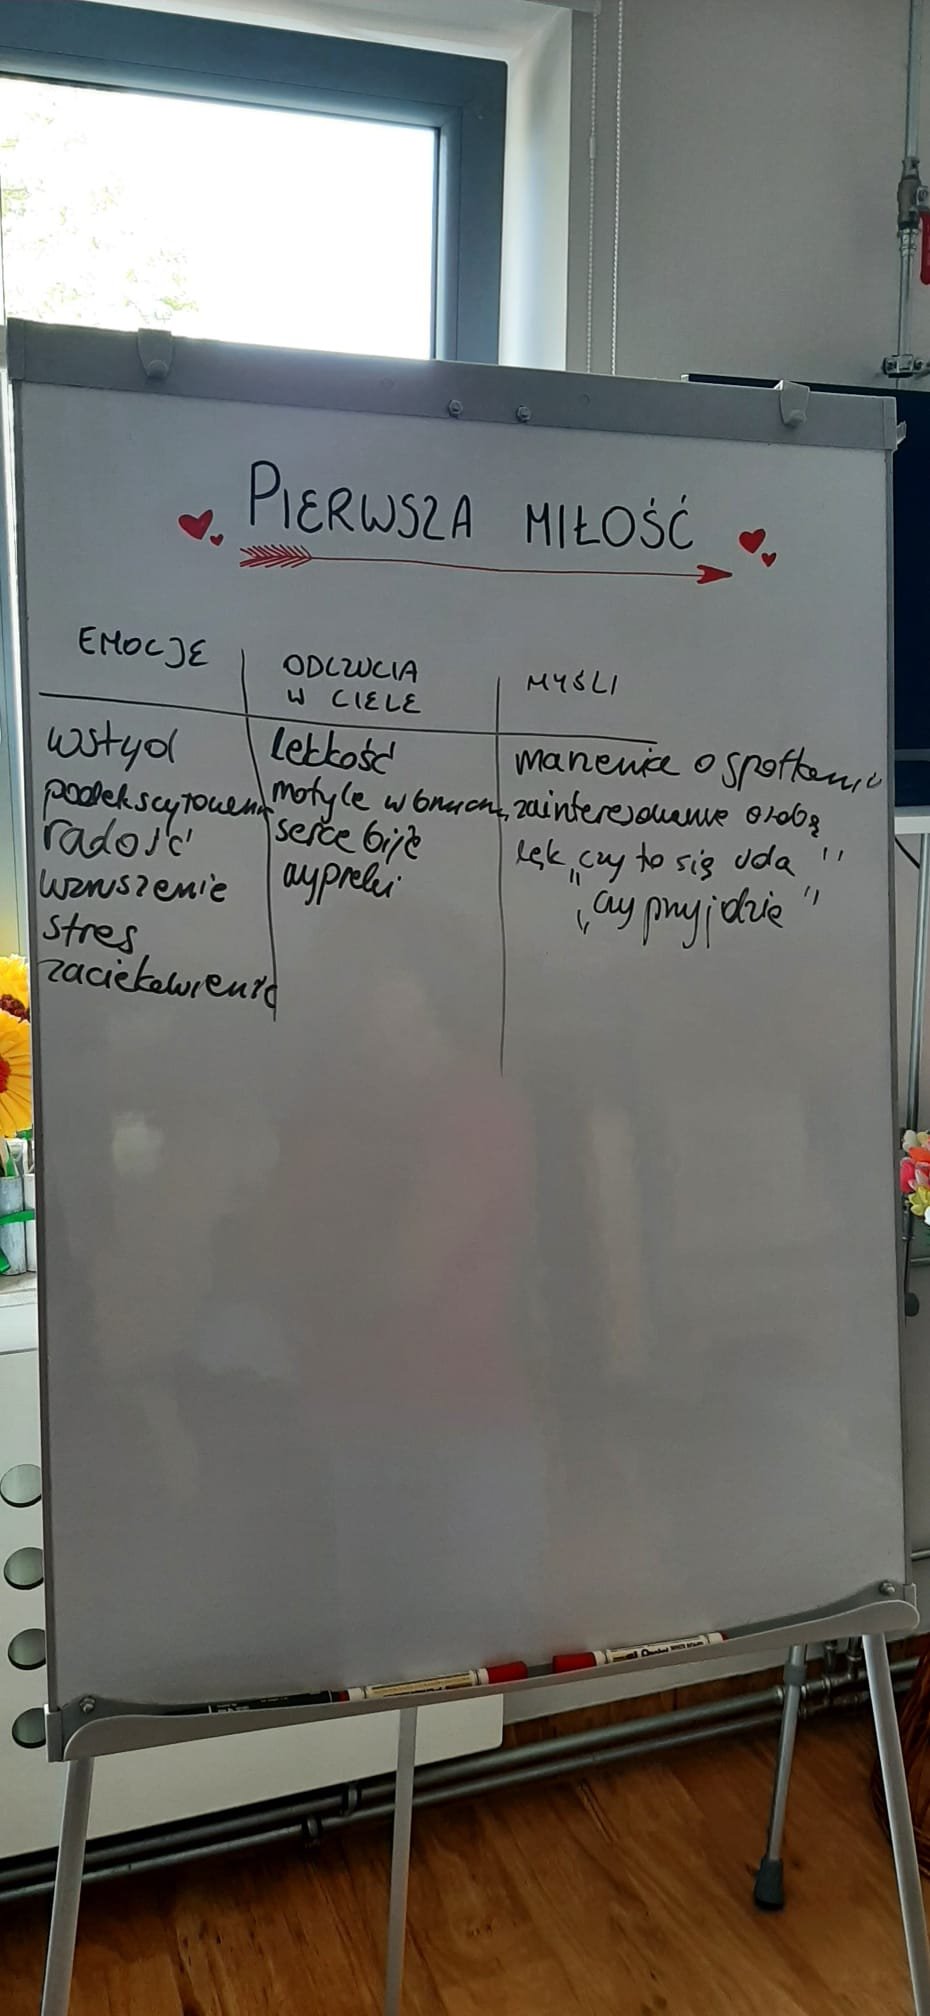 PIERWSZA MIŁOŚĆ
EMOCJE
wstyd
podekscytowanie
radość
wzruszenie
stres
zaciekawienie
ODCZUCIA
W CIELE
lekkość
motyle w brzuchu
serce bije
wypieki
MYŚLI
marzenia o spotkaniu
zainteresowanie osobą
lęk „czy to się uda”
„czy przyjdzie”